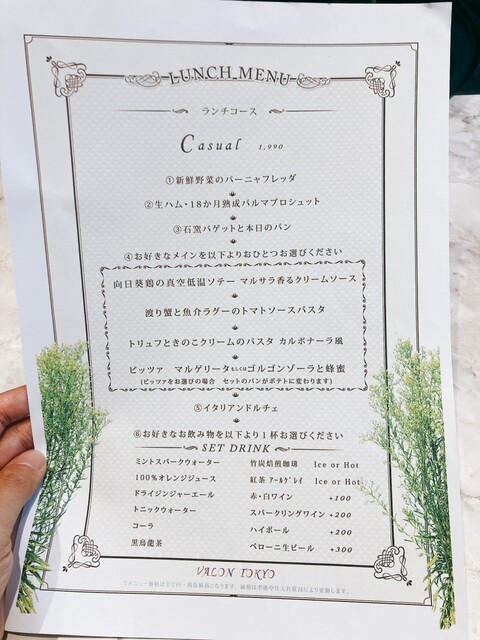 LUNCH MENU
ランチコース
Casual 1,990
①新鮮野菜のバーニャフレッダ
②生ハム・18か月熟成パルマプロシュット
③石窯バゲットと本日のパン
④お好きなメインを以下よりおひとつお選びください
向日葵鶏の真空低温ソテー マルサラ香るクリームソース
渡り蟹と魚介ラグーのトマトソースパスタ
トリュフときのこクリームのパスタ カルボナーラ風
ピッツァ マルゲリータもしくはゴルゴンゾーラと蜂蜜
(ピッツァをお選びの場合 セットのパンがポテトに変わります)
⑤イタリアンドルチェ
⑥お好きなお飲み物を以下より1杯お選びください
SET DRINK
ミントスパークウォーター 竹炭焙煎珈琲 Ice or Hot
100%オレンジジュース 紅茶 アールグレイ Ice or Hot
ドライジンジャーエール 赤・白ワイン +100
トニックウォーター スパークリングワイン +200
コーラ ハイボール +200
黒烏龍茶 ペローニ生ビール +300
VALON TOKYO